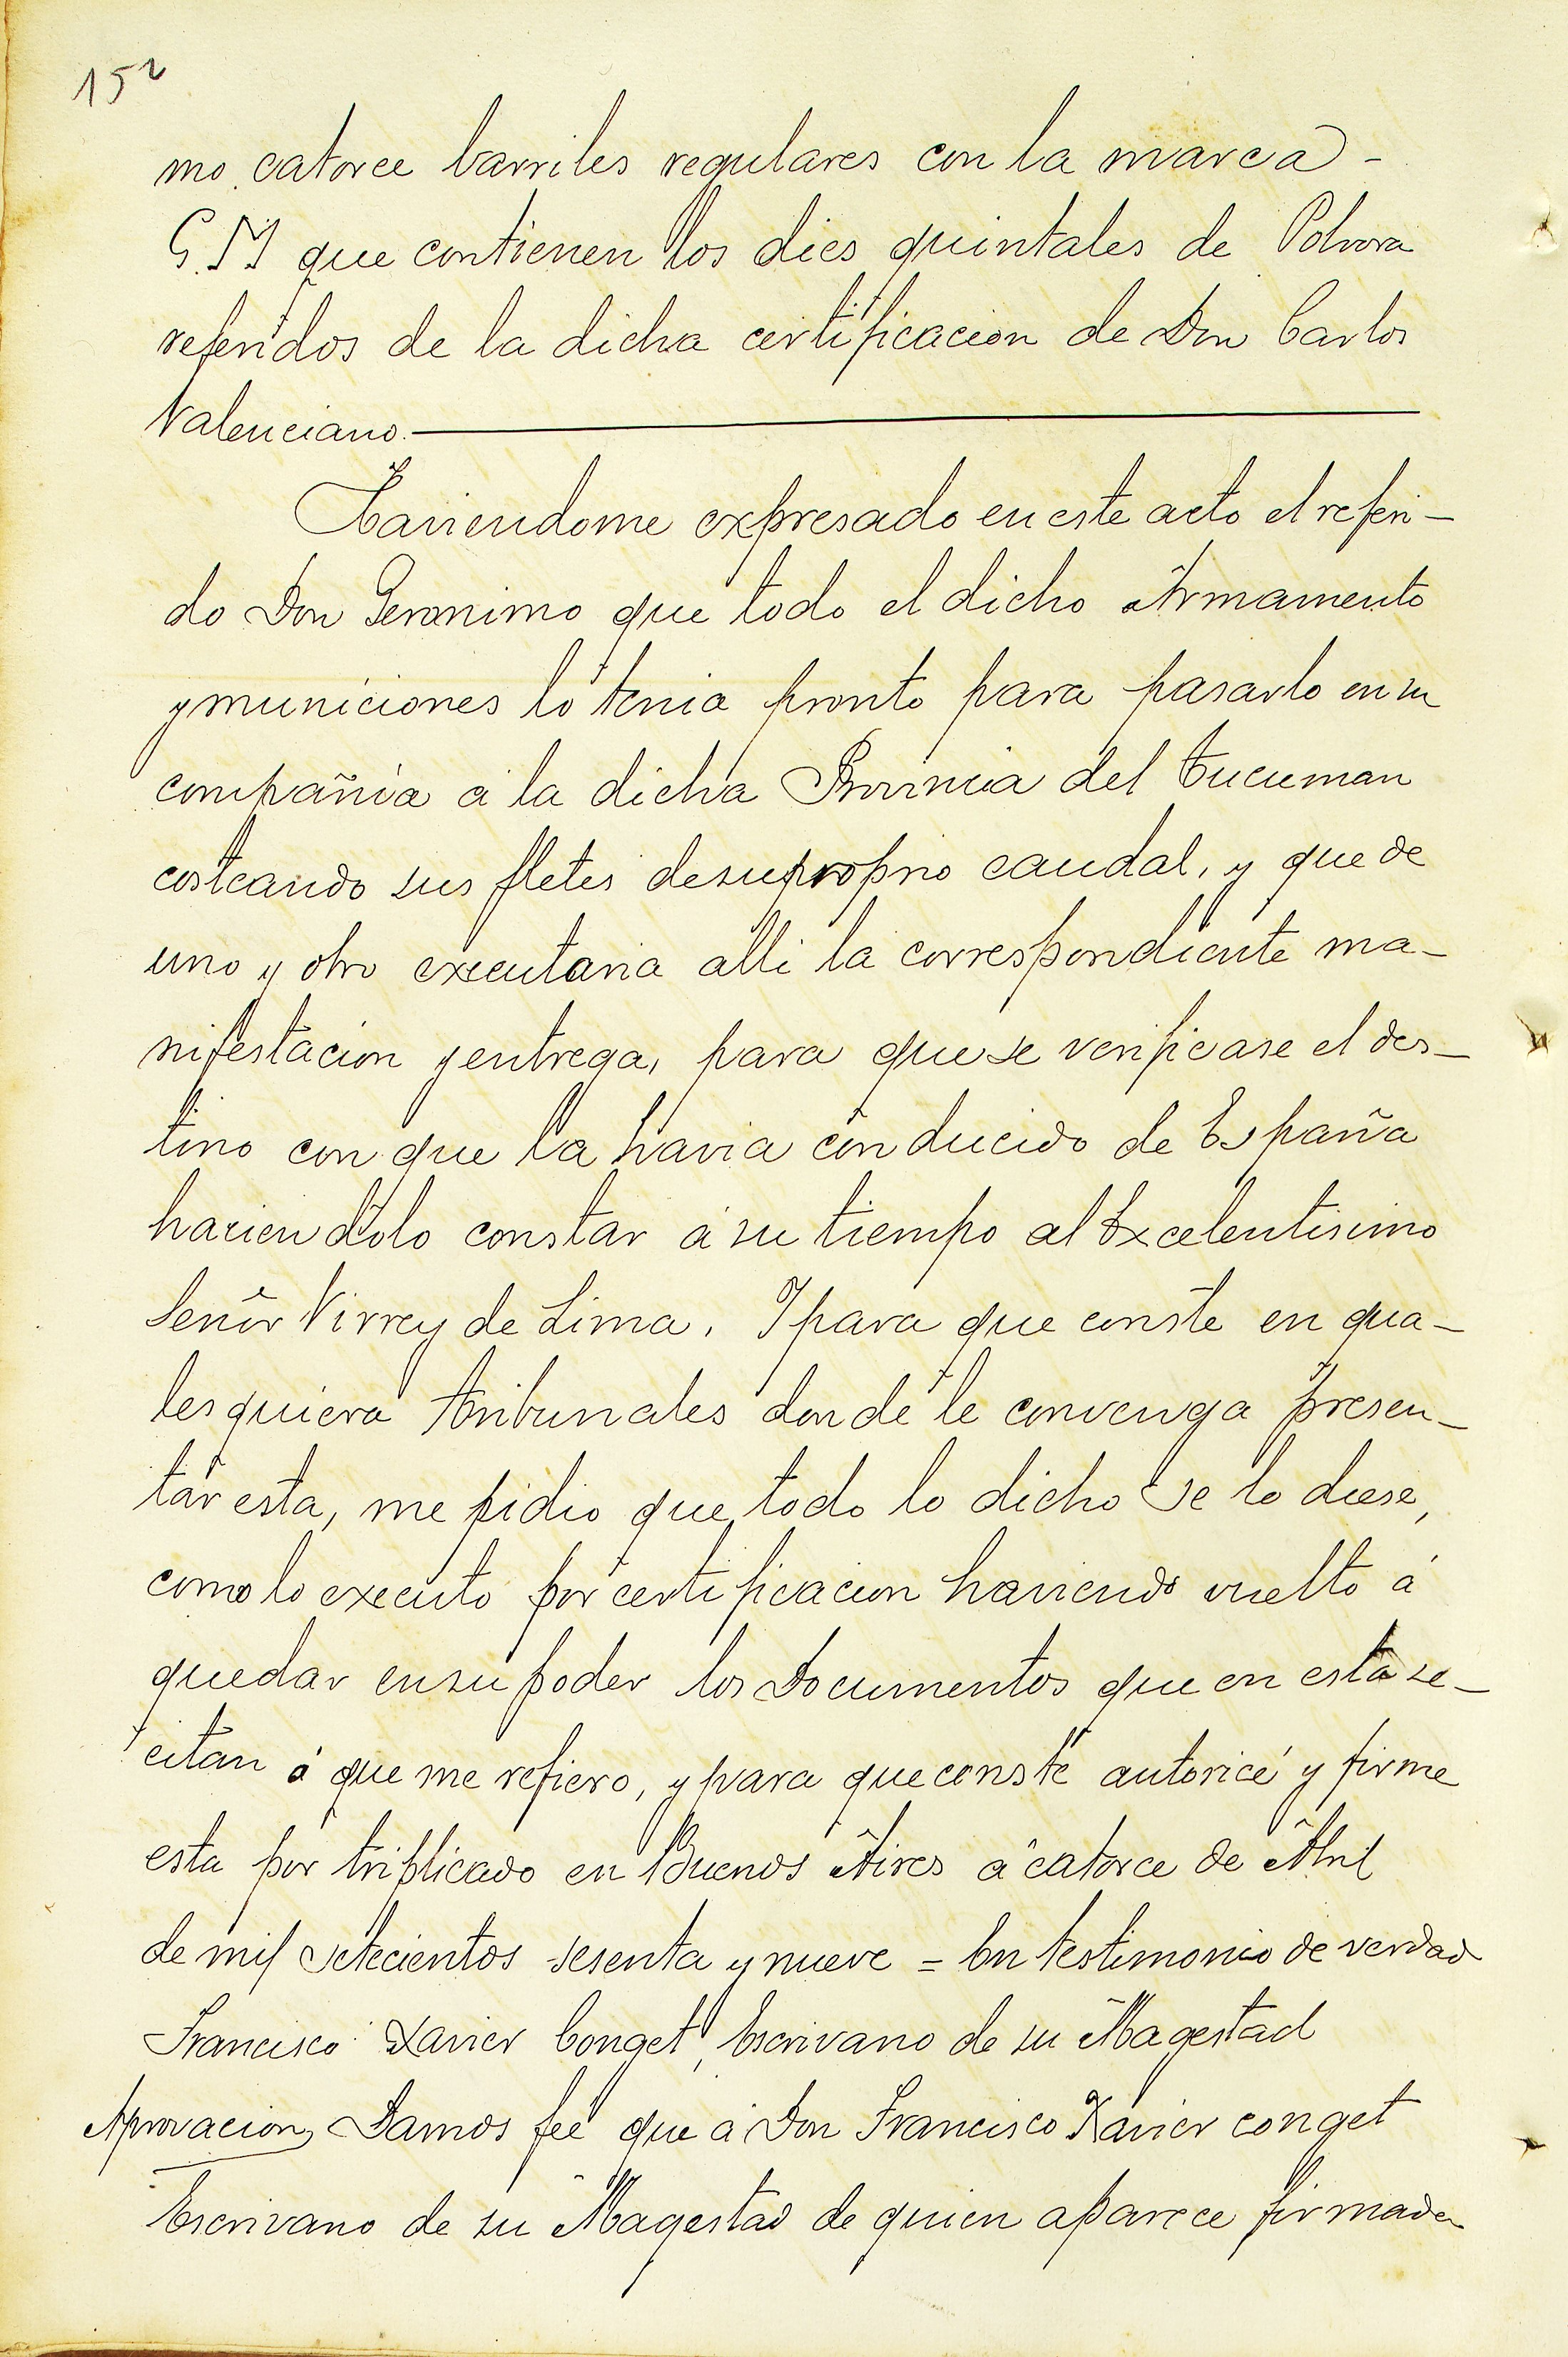 152
mo catorce barriles regulares con la marca -
G.M que contienen los dies quintales de Polvora
referidos de la dicha certificacion de Don Carlos
Valenciano.
Haviendome expresado en este acto el referi-
do Don Geronimo que todo el dicho Armamento
y municiones lo tenia pronto para pasarlo en su
compañia a la dicha Provincia del Tucuman
costeando sus fletes de su proprio caudal, y que de
uno y otro executaria alli la correspondiente ma-
nifestacion y entrega, para que se verificase el des-
tino con que la havia conducido de España
haciendolo constar á su tiempo al Excelentisimo
Señor Virrey de Lima. Y para que conste en qua-
lesquiera tribunales donde le convenga presen-
tar esta, me pidio que todo lo dicho se lo diese,
como lo executo por certificacion haviendo vuelto á
quedar en su poder los Documentos que en esta se-
citan á que me refiero, y para que conste autoricé y firme
esta por triplicado en Buenos Aires á catorce de Abril
de mil setecientos sesenta y nueve = En testimonio de verdad
Francisco Xavier Conget, Escrivano de su Magestad
Aprovacion Damos feé que á Don Francisco Xavier conget
Escrivano de su Magestad de quien aparece firmada